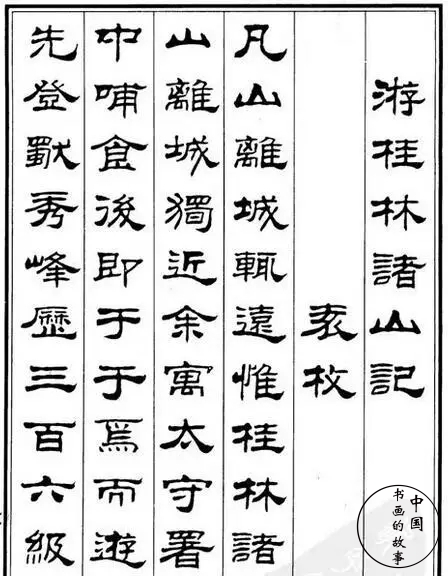 游桂林諸山記
袁枚
凡山離城輒遠惟桂林諸
山離城獨近余寓太守署
中哺食後即于于焉而遊
先登獨秀峰歷三百六級
中国
书画的故事